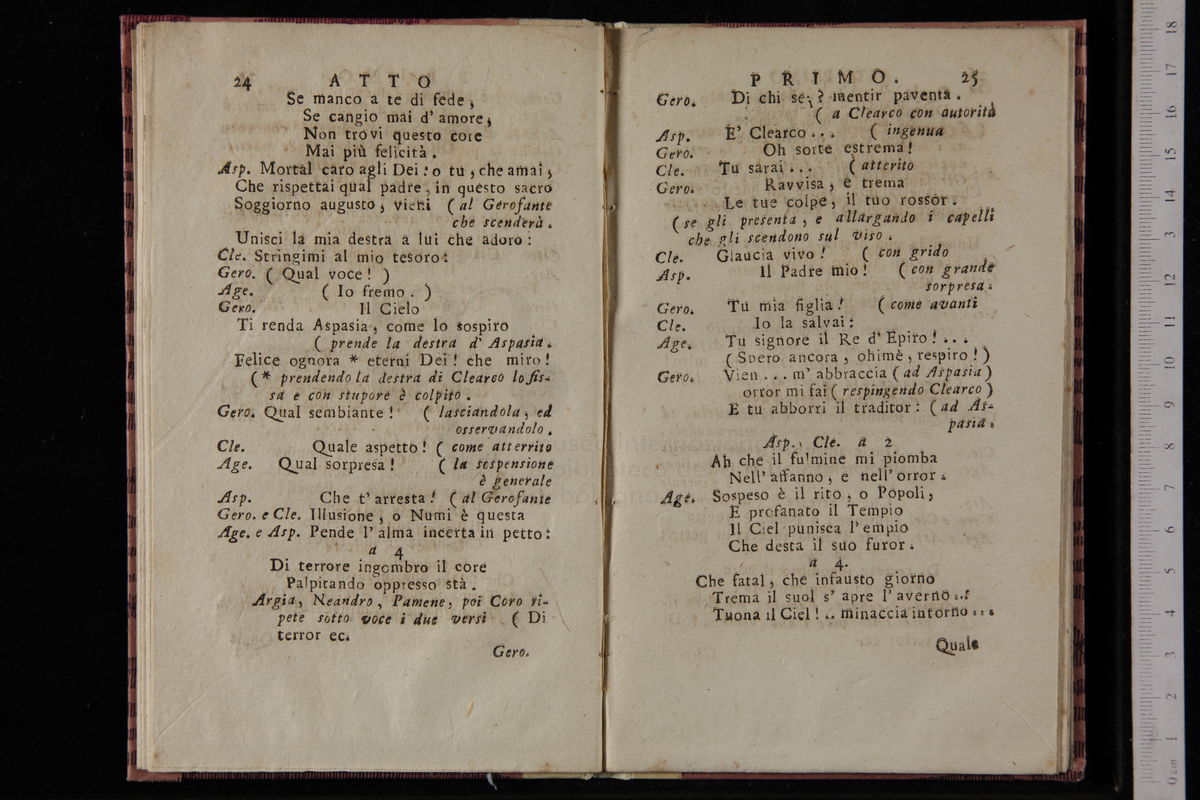 24 ATTO
Se manco a te di fede,
Se cangio mai d' amore,
Non trovi questo core
Mai più felicità.
Asp. Mortal caro agli Dei: o tu, che amai,
Che rispettai qual padre, in questo sacro
Soggiorno augusto, vieni ( al Gerofante
che scenderà.
Unisci la mia destra a lui che adoro:
Cle. Stringimi al mio tesoro:
Gero. ( Qual voce! )
Age. ( Io fremo. )
Gero. Il Cielo
Ti renda Aspasia, come lo sospiro
( prende la destra d' Aspasia.
Felice ognora * eterni Dei! che miro!
(* prendendo la destra di Clearco lo fis-
sa e con stupore è colpito.
Gero. Qual sembiante! ( lasciandola, ed
osservandolo.
Cle. Quale aspetto! ( come atterrito
Age. Qual sorpresa! ( la sospensione
è generale
Asp. Che t' arresta! ( al Gerofante
Gero. e Cle. Illusione, o Numi è questa
Age. e Asp. Pende l' alma incerta in petto:
a 4
Di terrore ingombro il core
Palpitando oppresso stà.
Argia, Neandro, Pamene, poi Coro ri-
pete sotto voce i due versi ( Di
terror ec.
Gero.
PRIMO. 25
Gero. Di chi se'? mentir paventa.
( a Clearco con autorità
Asp. E' Clearco... ( ingenua
Gero. Oh sorte estrema!
Cle. Tu sarai... ( atterito
Gero. Ravvisa, e trema
Le tue colpe, il tuo rossor.
( se gli presenta, e allargando i capelli
che gli scendono sul viso.
Cle. Glaucia vivo! ( con grido
Asp. Il Padre mio! ( con grande
sorpresa.
Gero. Tu mia figlia! ( come avanti
Cle. Io la salvai:
Age. Tu signore il Re d' Epiro!...
( Spero ancora, ohimè, respiro! )
Gero. Vien... m' abbraccia ( ad Aspasia )
orror mi fai ( respingendo Clearco )
E tu abborri il traditor: ( ad As-
pasia.
Asp., Cle. a 2
Ah che il fulmine mi piomba
Nell' affanno, e nell' orror.
Age. Sospeso è il rito, o Popoli,
E profanato il Tempio
Il Ciel punisca l' empio
Che desta il suo furor.
a 4.
Che fatal, che infausto giorno
Trema il suol s' apre l' averno..!
Tuona il Ciel!.. minaccia intorno...
Quale